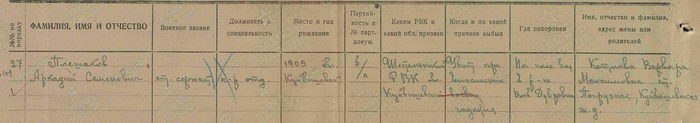 №№ по порядку
ФАМИЛИЯ, ИМЯ И ОТЧЕСТВО
Военное звание
Должность и специальность
Место и год рождения
Партийность и № парт. докум.
Каким РВК и какой обл. призван
Когда и по какой причине выбыл
Где похоронен
Имя, отчество и фамилия, адрес жены или родителей
27
Плешаков
Аркадий Семенович
ст. сержант
к-р отд.
1905
Куйбышев
б/п
РВК
Куйбышевск
Убит при
выполнении
задания
На поле боя
в р-не
Дубровки
Варвара
Максимовна
Погрузная, Куйбышевская
ж.д.